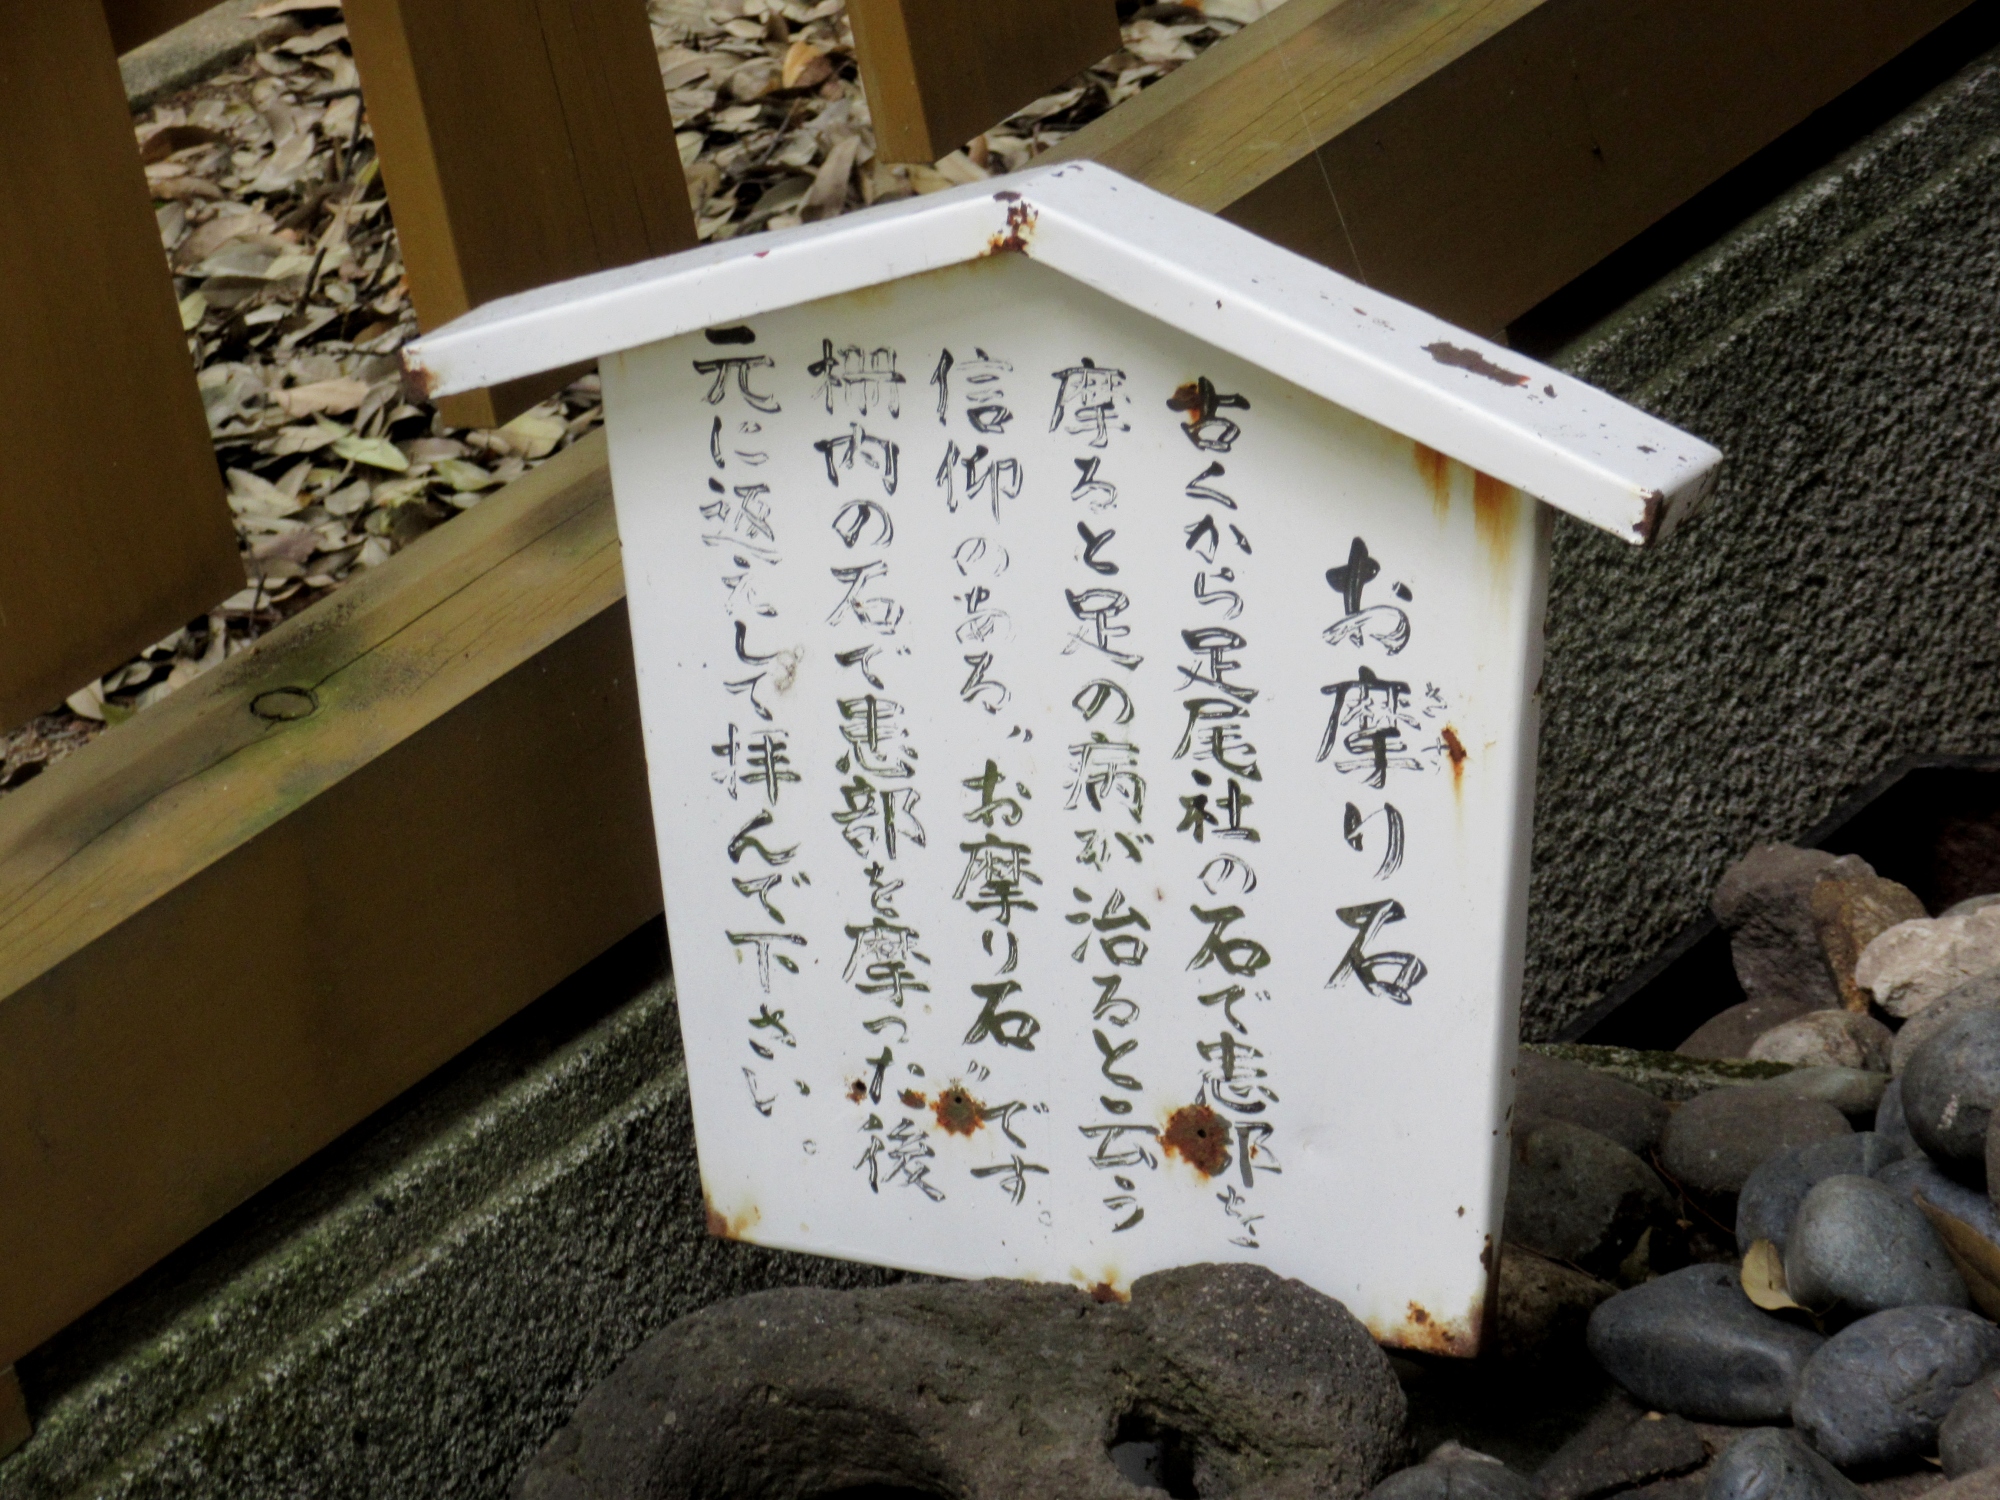 お摩り石
さす
古くから足尾社の石で患部を
摩ると足の病が治ると云う
信仰のある〝お摩り石〟です。
柵内の石で患部を摩った後
元に返えして拝んで下さい。